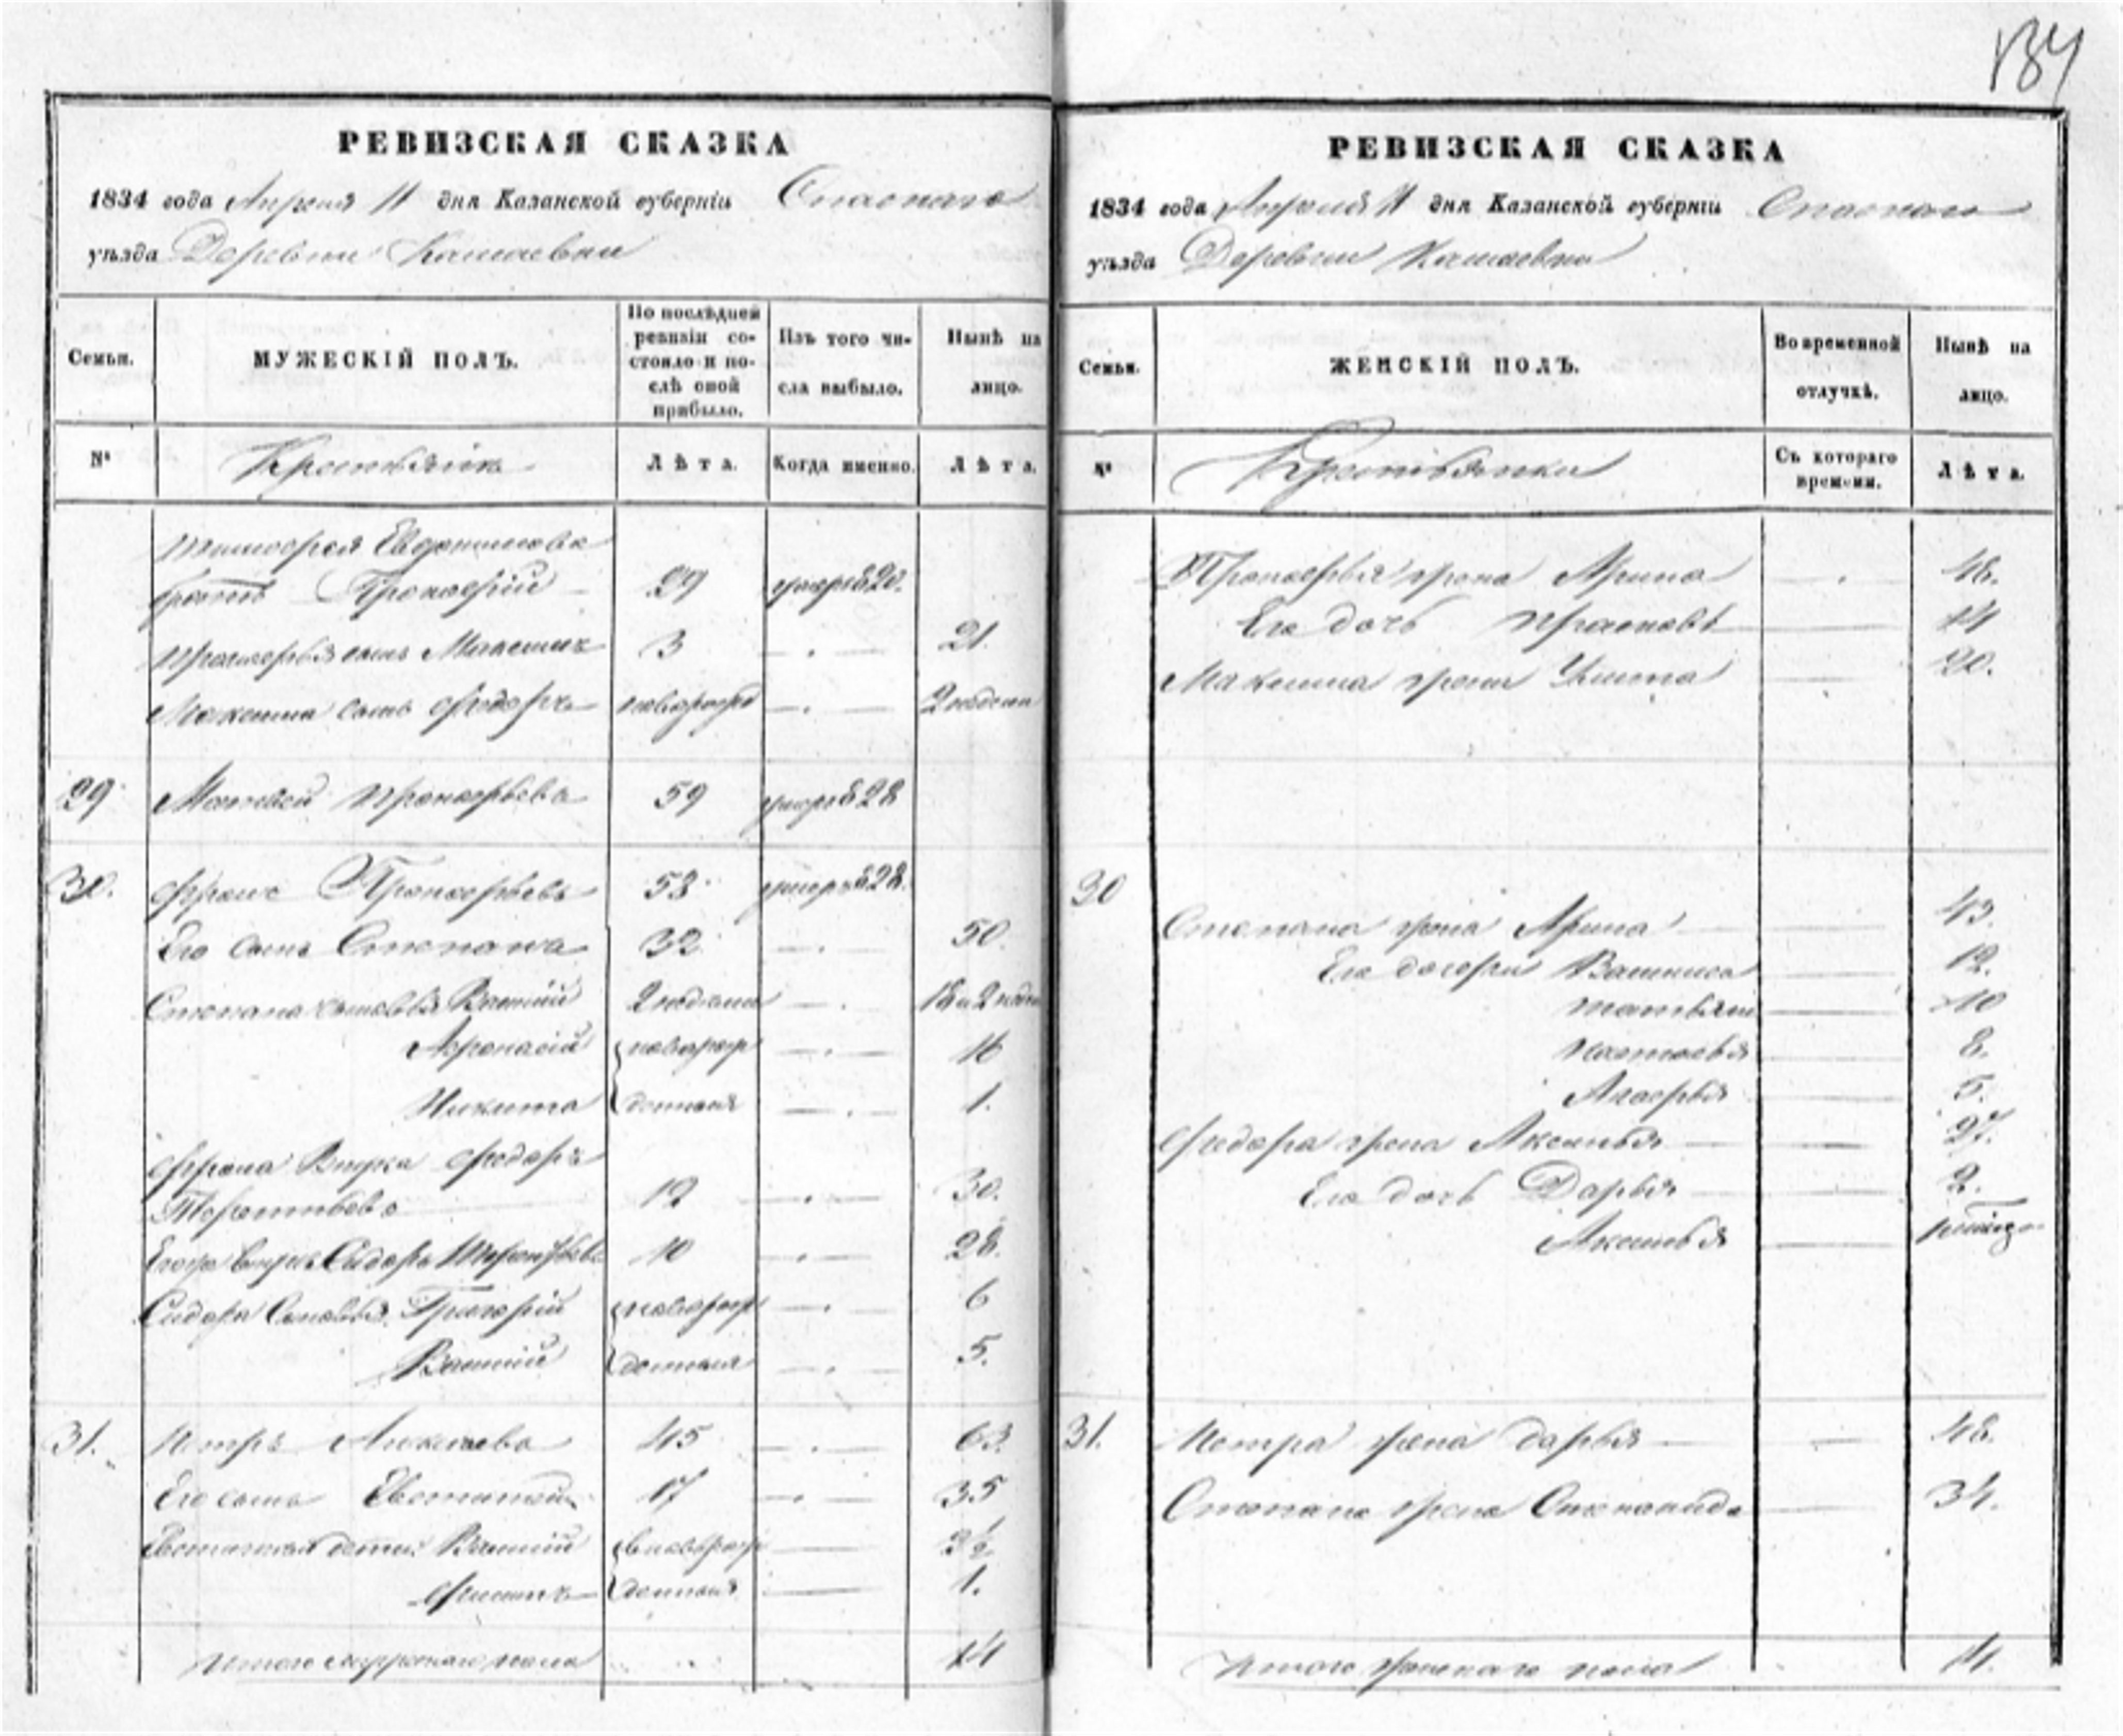 134
РЕВИЗСКАЯ СКАЗКА
1834 года Апреля 11 дня Казанской губерніи Спаскаго
уѣзда Деревни Кашаевки
Семьи.
МУЖЕСКІЙ ПОЛЪ.
По послѣдней ревизіи состояло и послѣ оной прибыло.
Изъ того числа выбыло.
Нынѣ на лицо.
№
Крестьяне
Лѣта.
Когда именно.
Лѣта.
Тимофея Евдокимова
братъ Прокофій 29
Прокофья сынъ Максимъ 3 21.
Максима сынъ Федоръ 2 недели
29 Матвей Прокофьевъ 59
30. Фролъ Прокофьевъ 58
Его сынъ Степанъ 32 50.
Степана сыновья Василій 2 недели
Афанасій новорож 16
Никита денныя 1.
Фрола внукъ Федоръ
Терентьевъ 12 30.
внукъ Сидоръ Терентьевъ 10 28.
Сидора сыновья Григорій новорож 6
Василій денныя 5.
31. Петръ Алексеевъ 45 63.
Его сынъ 17 35
дети Василій новорож 3½
Филипъ денныя 1.
Итого мужескаго пола 14
РЕВИЗСКАЯ СКАЗКА
1834 года Апреля 11 дня Казанской губерніи Спаскаго
уѣзда Деревни Кашаевки
Семьи.
ЖЕНСКІЙ ПОЛЪ.
Во временной отлучкѣ.
Нынѣ на лицо.
№
Крестьянки
Съ котораго времени.
Лѣта.
Прокофья жена Арина 46.
Его дочь 14
Максима жена 20.
30
Степана жена Арина 43.
Его дочери Василиса 12.
Татьяна 10
Настасья 8.
Агафья 5.
Федора жена Аксинья 27.
Его дочь Дарья 2.
Аксинья
31. Петра жена Дарья 48.
Степана жена Степанида 34.
Итого женскаго пола 14.